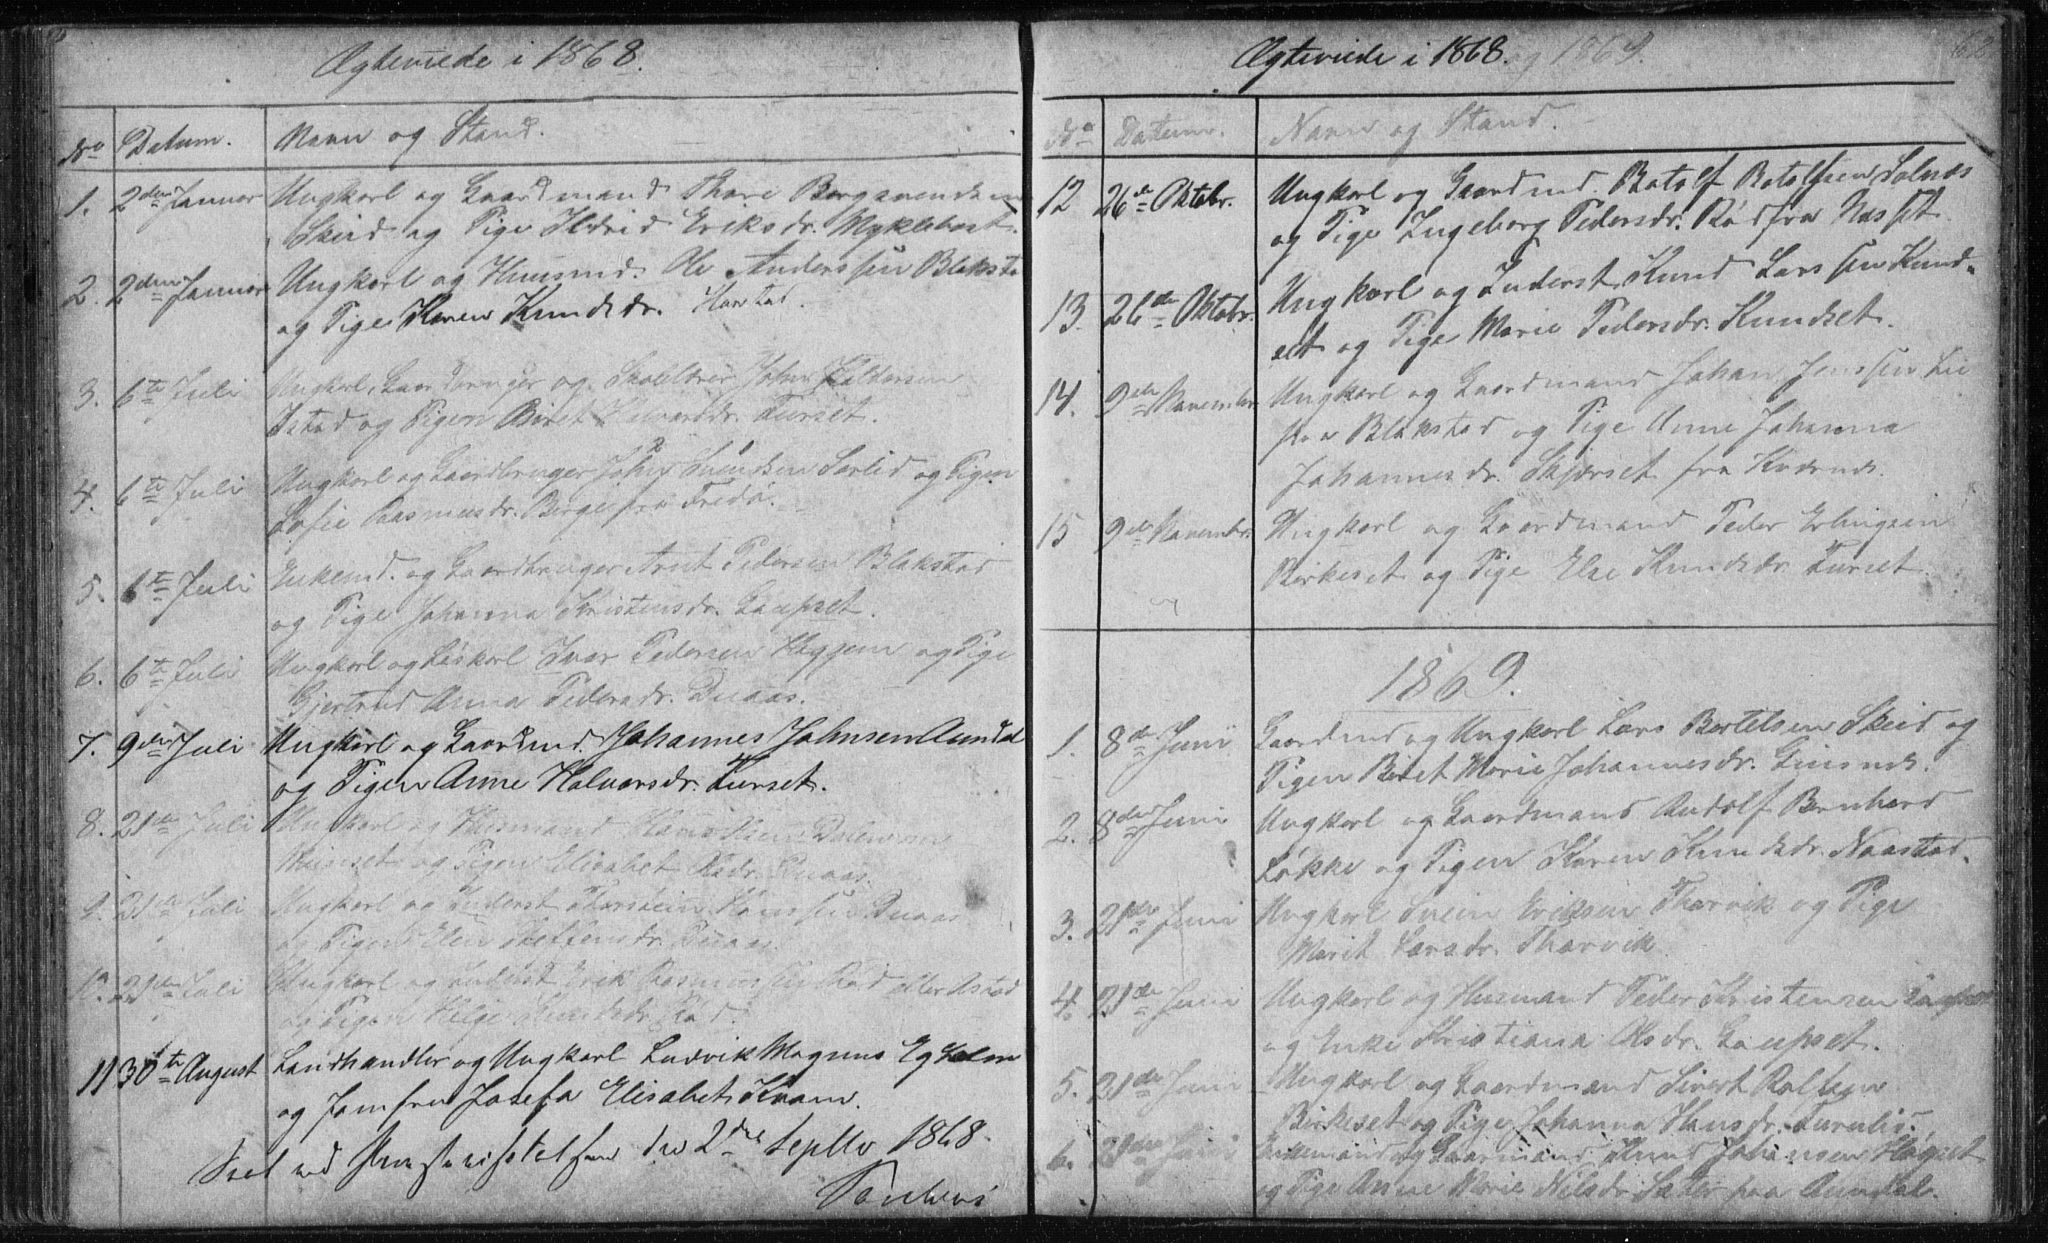 Ægteviede i 1868.
No Datum. Navn og Stand.
1. 2den Januar Ungkarl og Gaardmand Thore Bergsvendsen
Skeid og Pige Ildrid Eriksdr. Myklebost.
2. 2den Januar Ungkarl og Huusmd. Ole Anderssen Blakstad
og Pige Karen Knudsdr. Harstad.
3. 6te Juli Ungkarl, Gaardbruger og Skolelærer John
Istad og Pigen Beret Halvorsdr. Furset.
4. 6te Juli Ungkarl og Gaardbruger John Svendsen Sorlid og Pigen
Sofie Rasmusdr. Berge fra Fredø.
5. 6te Juli Enkemd. og Gaardbruger Arnt Pedersen Blakstad
og Pige Johanna Kristensdr. Gaupset.
6. 6te Juli Ungkarl og Løskarl Ivar Pedersen Heggem og Pige
Gjertrud Anna Pedersdr. Duaas.
7. 9de Juli Ungkarl og Gaardmd. Johannes Johnsen Aundal
og Pigen Anne Halvorsdr. Furset.
8. 21de Juli Ungkarl og Husmand Hans Olsen
og Pigen Elisabet Olsdr. Duaas.
9. 21de Juli Ungkarl og Inderst Thorstein Hanssen Duaas
og Pigen Elen Steffensdr. Duaas.
10. 21de Juli Ungkarl og Inderst Erik Rasmussen Rød eller Istad
og Pigen Helge Knudsdr. Rød.
11 30te August Landhandler og Ungkarl Ludvik Magnus Egholm
og Jomfru Josefa Elisabet Kvam.
Seet ved den 2den Septbr 1868.
Ægteviede i 1868. og 1869.
62
No Datum. Navn og Stand.
12 26de Oktobr. Ungkarl og Gaardmd. Botolf Botolfsen Solnæs
og Pige Ingeborg Pedersdr. Rød fra Næsset.
13. 26de Oktobr. Ungkarl og Inderst Knud Larssen Knud-
set og Pige Marie Pedersdr. Knudset.
14. 9de Novembr. Ungkarl og Gaardmand Johan Jenssen Lie
paa Blakstad og Pige Anne Johanna
Johannesdr. Skjærset fra Kværnæs.
15 9de Novembr. Ungkarl og Gaardmand Peder Erlingsen
Birkeset og Pige Else Knudsdr. Furset.
1869.
1. 8de Juni Gaardmd og Ungkarl Lars Bertelsen Skeid og
Pigen Beret Marie Johannesdr. Gimnæs.
2. 8de Juni Ungkarl og Gaardmand Rudolf Bernhard
Løkke og Pigen Karen Knudsdr. Naastad.
3. 21de Juni Ungkarl Svein Eriksen Tharvik og Pige
Marit Larsdr. Tharvik.
4. 21de Juni Ungkarl og Husmand Peder Kristensen Gaupset
og Enke Kristiana Olsdr. Gaupset.
5. 21de Juni Ungkarl og Gaardmand Sivert
Birkeset og Pige Johanna Hansdr. Furulie.
6. 21de Juni Enkemand og Gaarmand Knud Johansen Høgset
og Pige Anne Marie Nilsdr. Sæter paa Aundal.